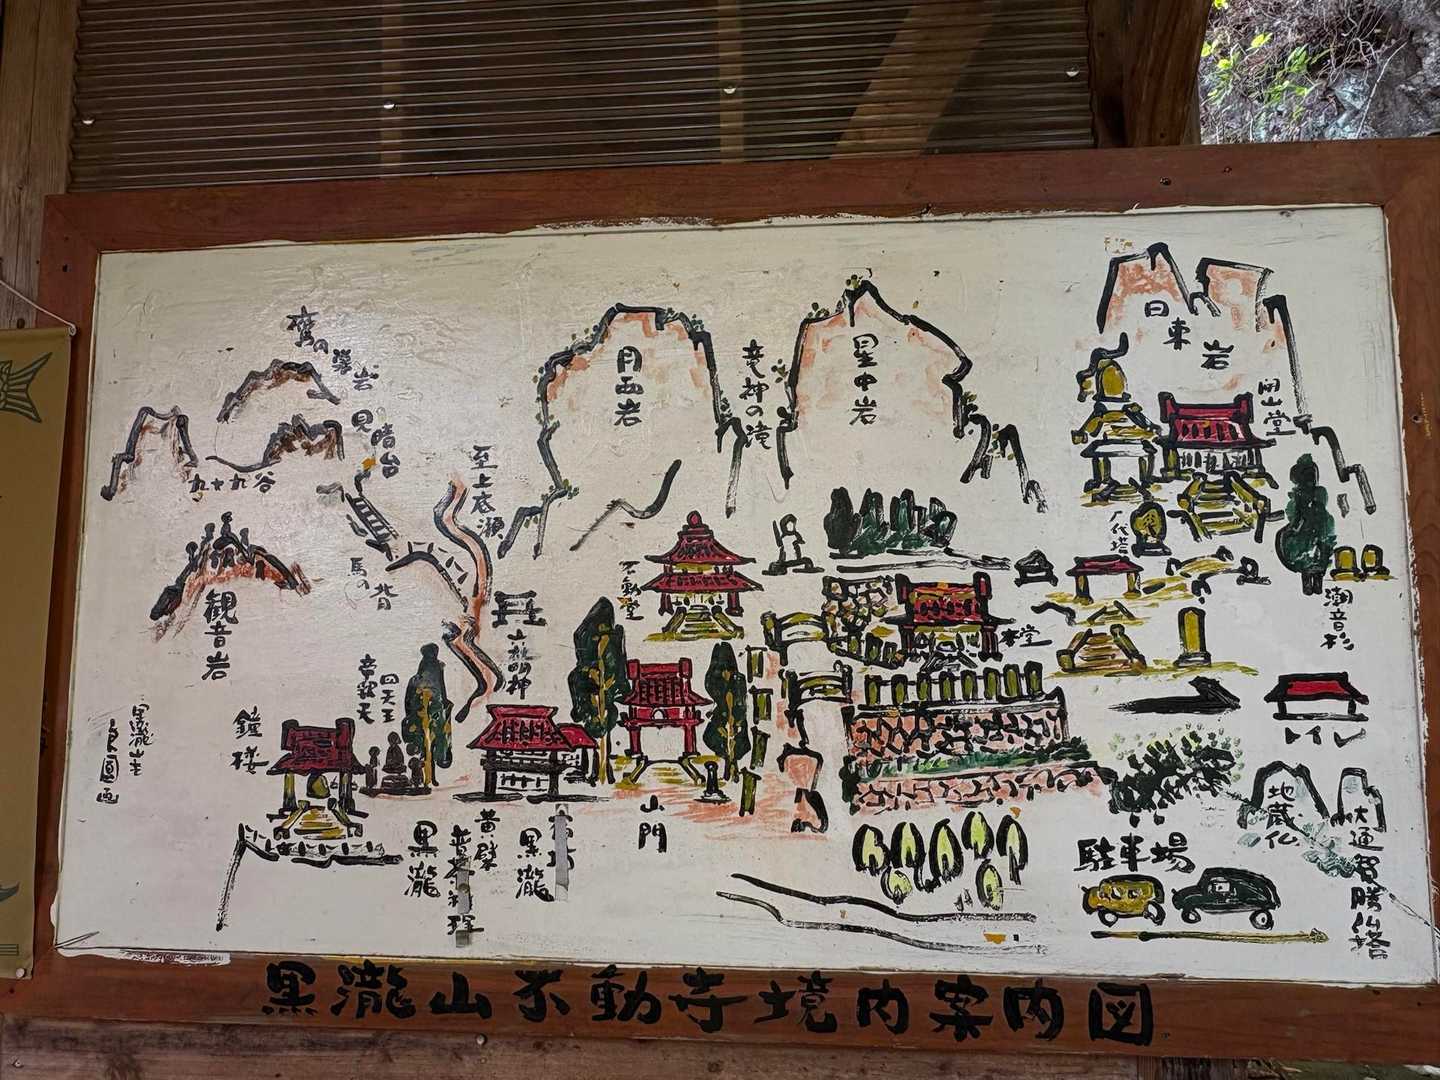 日東岩
開山堂
星中岩
竜神の滝
月西岩
鷹の巣岩
見晴台
九十九谷
至上底瀬
馬の背
観音岩
不動堂
一代塔
潮音杉
本堂
大明神
四天王
鐘楼
山門
黒瀧
黄檗
普茶料理
黒瀧
駐車場
地蔵仏
大通智勝仏塔
黒瀧山主
良圓画
黒瀧山不動寺境内案内図